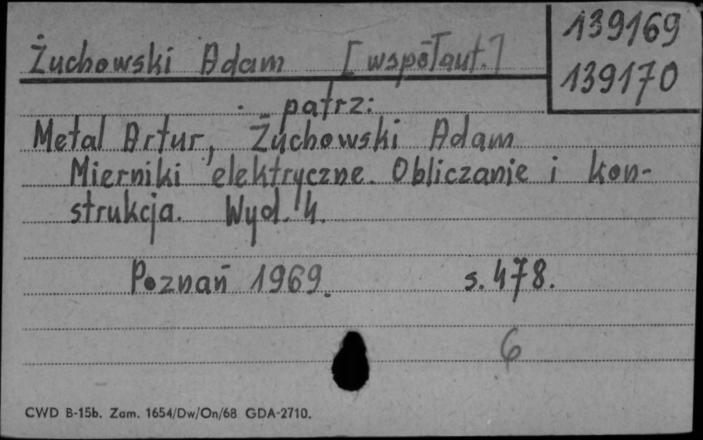 Żuchowski Adam [współaut.]
139169
139170
patrz:
Metal Artur, Żuchowski Adam
Mierniki elektryczne. Obliczanie i kon-
strukcja. Wyd. 4.
Poznań 1969. s. 478.
6
CWD B-15b. Zam. 1654/Dw/On/68 GDA-2710.